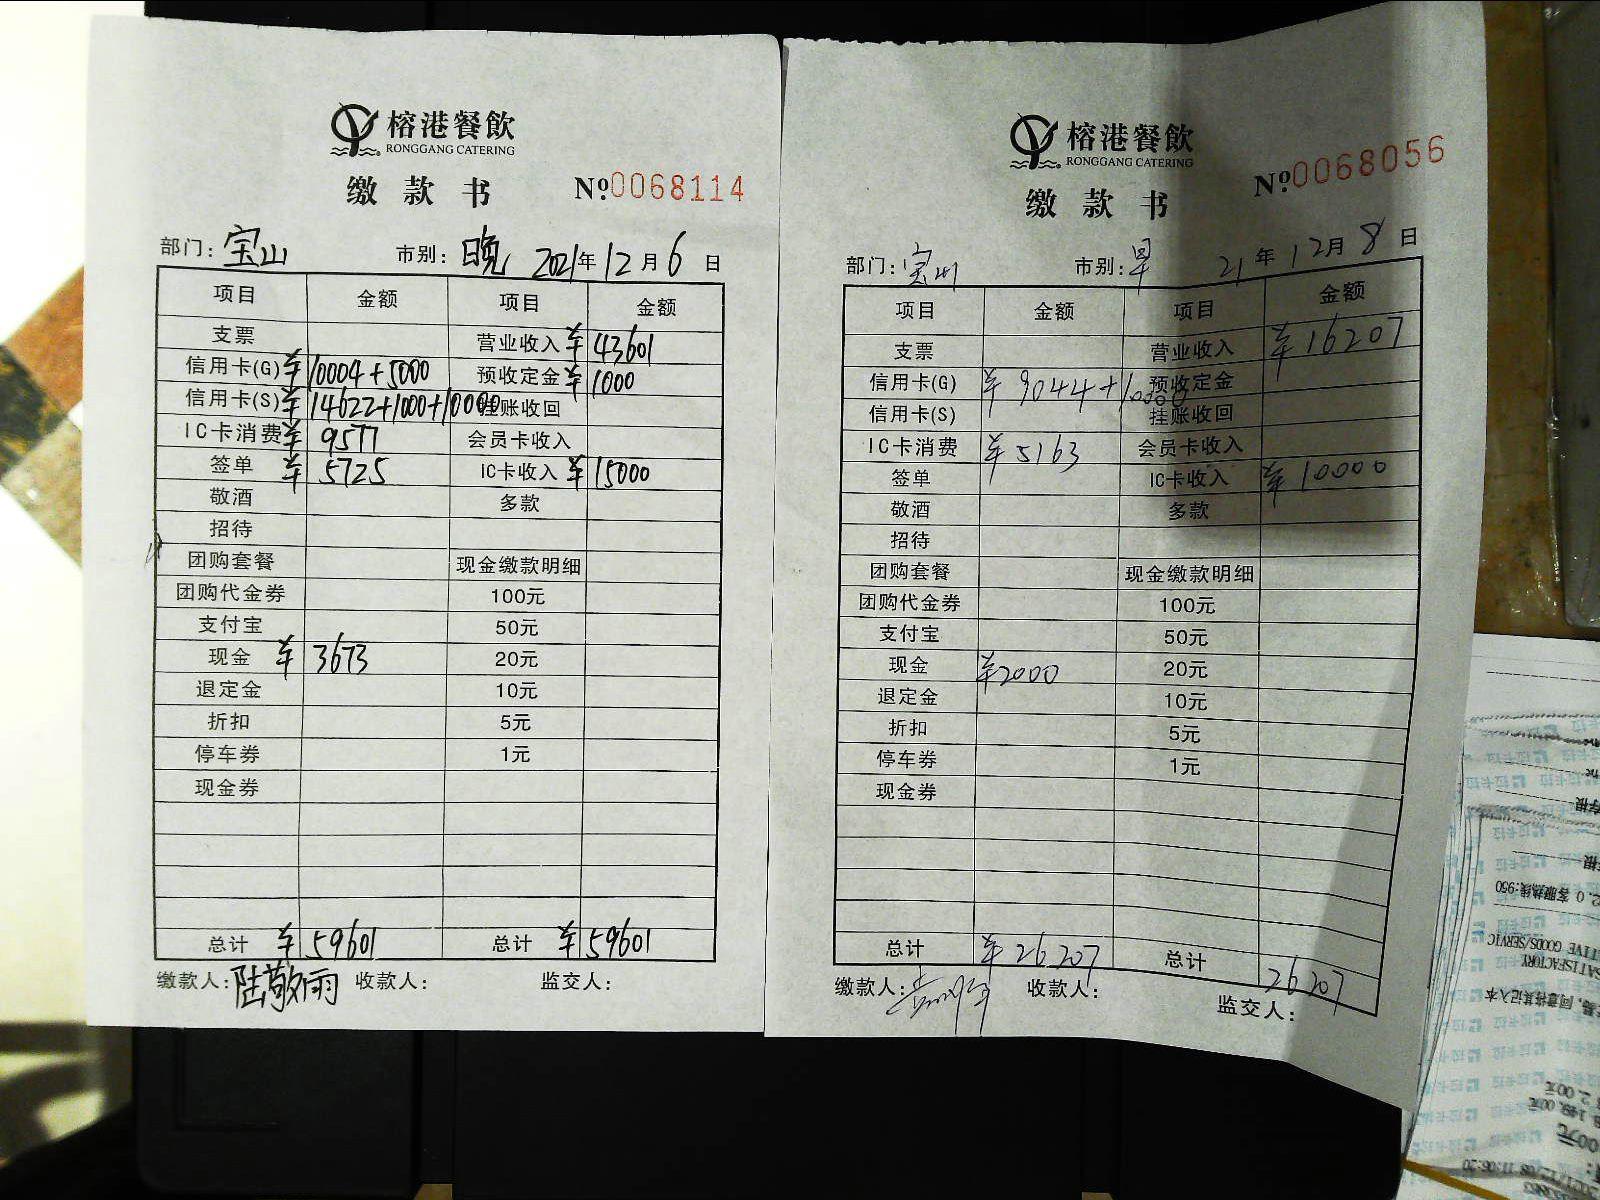 榕港餐飲
RONGGANG CATERING
缴款书 №0068114
部门：宝山 市别：晚 2021年12月6日
项目 金额 项目 金额
支票 营业收入 ¥43601
信用卡(G) ¥10004+5000 预收定金 ¥1000
信用卡(S) ¥14622+1000+10000 挂账收回
IC卡消费 ¥9577 会员卡收入
签单 ¥5725 IC卡收入 ¥15000
敬酒 多款
招待
团购套餐 现金缴款明细
团购代金券 100元
支付宝 50元
现金 ¥3673 20元
退定金 10元
折扣 5元
停车券 1元
现金券
总计 ¥59601 总计 ¥59601
缴款人：陆敬雨 收款人： 监交人：
榕港餐飲
RONGGANG CATERING
缴款书 №0068056
部门：宝山 市别：早 21年12月8日
项目 金额 项目 金额
支票 营业收入 ¥16207
信用卡(G) ¥9044+10000 预收定金
信用卡(S) 挂账收回
IC卡消费 ¥5163 会员卡收入
签单 IC卡收入 ¥10000
敬酒 多款
招待
团购套餐 现金缴款明细
团购代金券 100元
支付宝 50元
现金 ¥2000 20元
退定金 10元
折扣 5元
停车券 1元
现金券
总计 ¥26207 总计 26207
缴款人： 收款人： 监交人：
拉卡拉
客服热线:950
SATISFACTORY